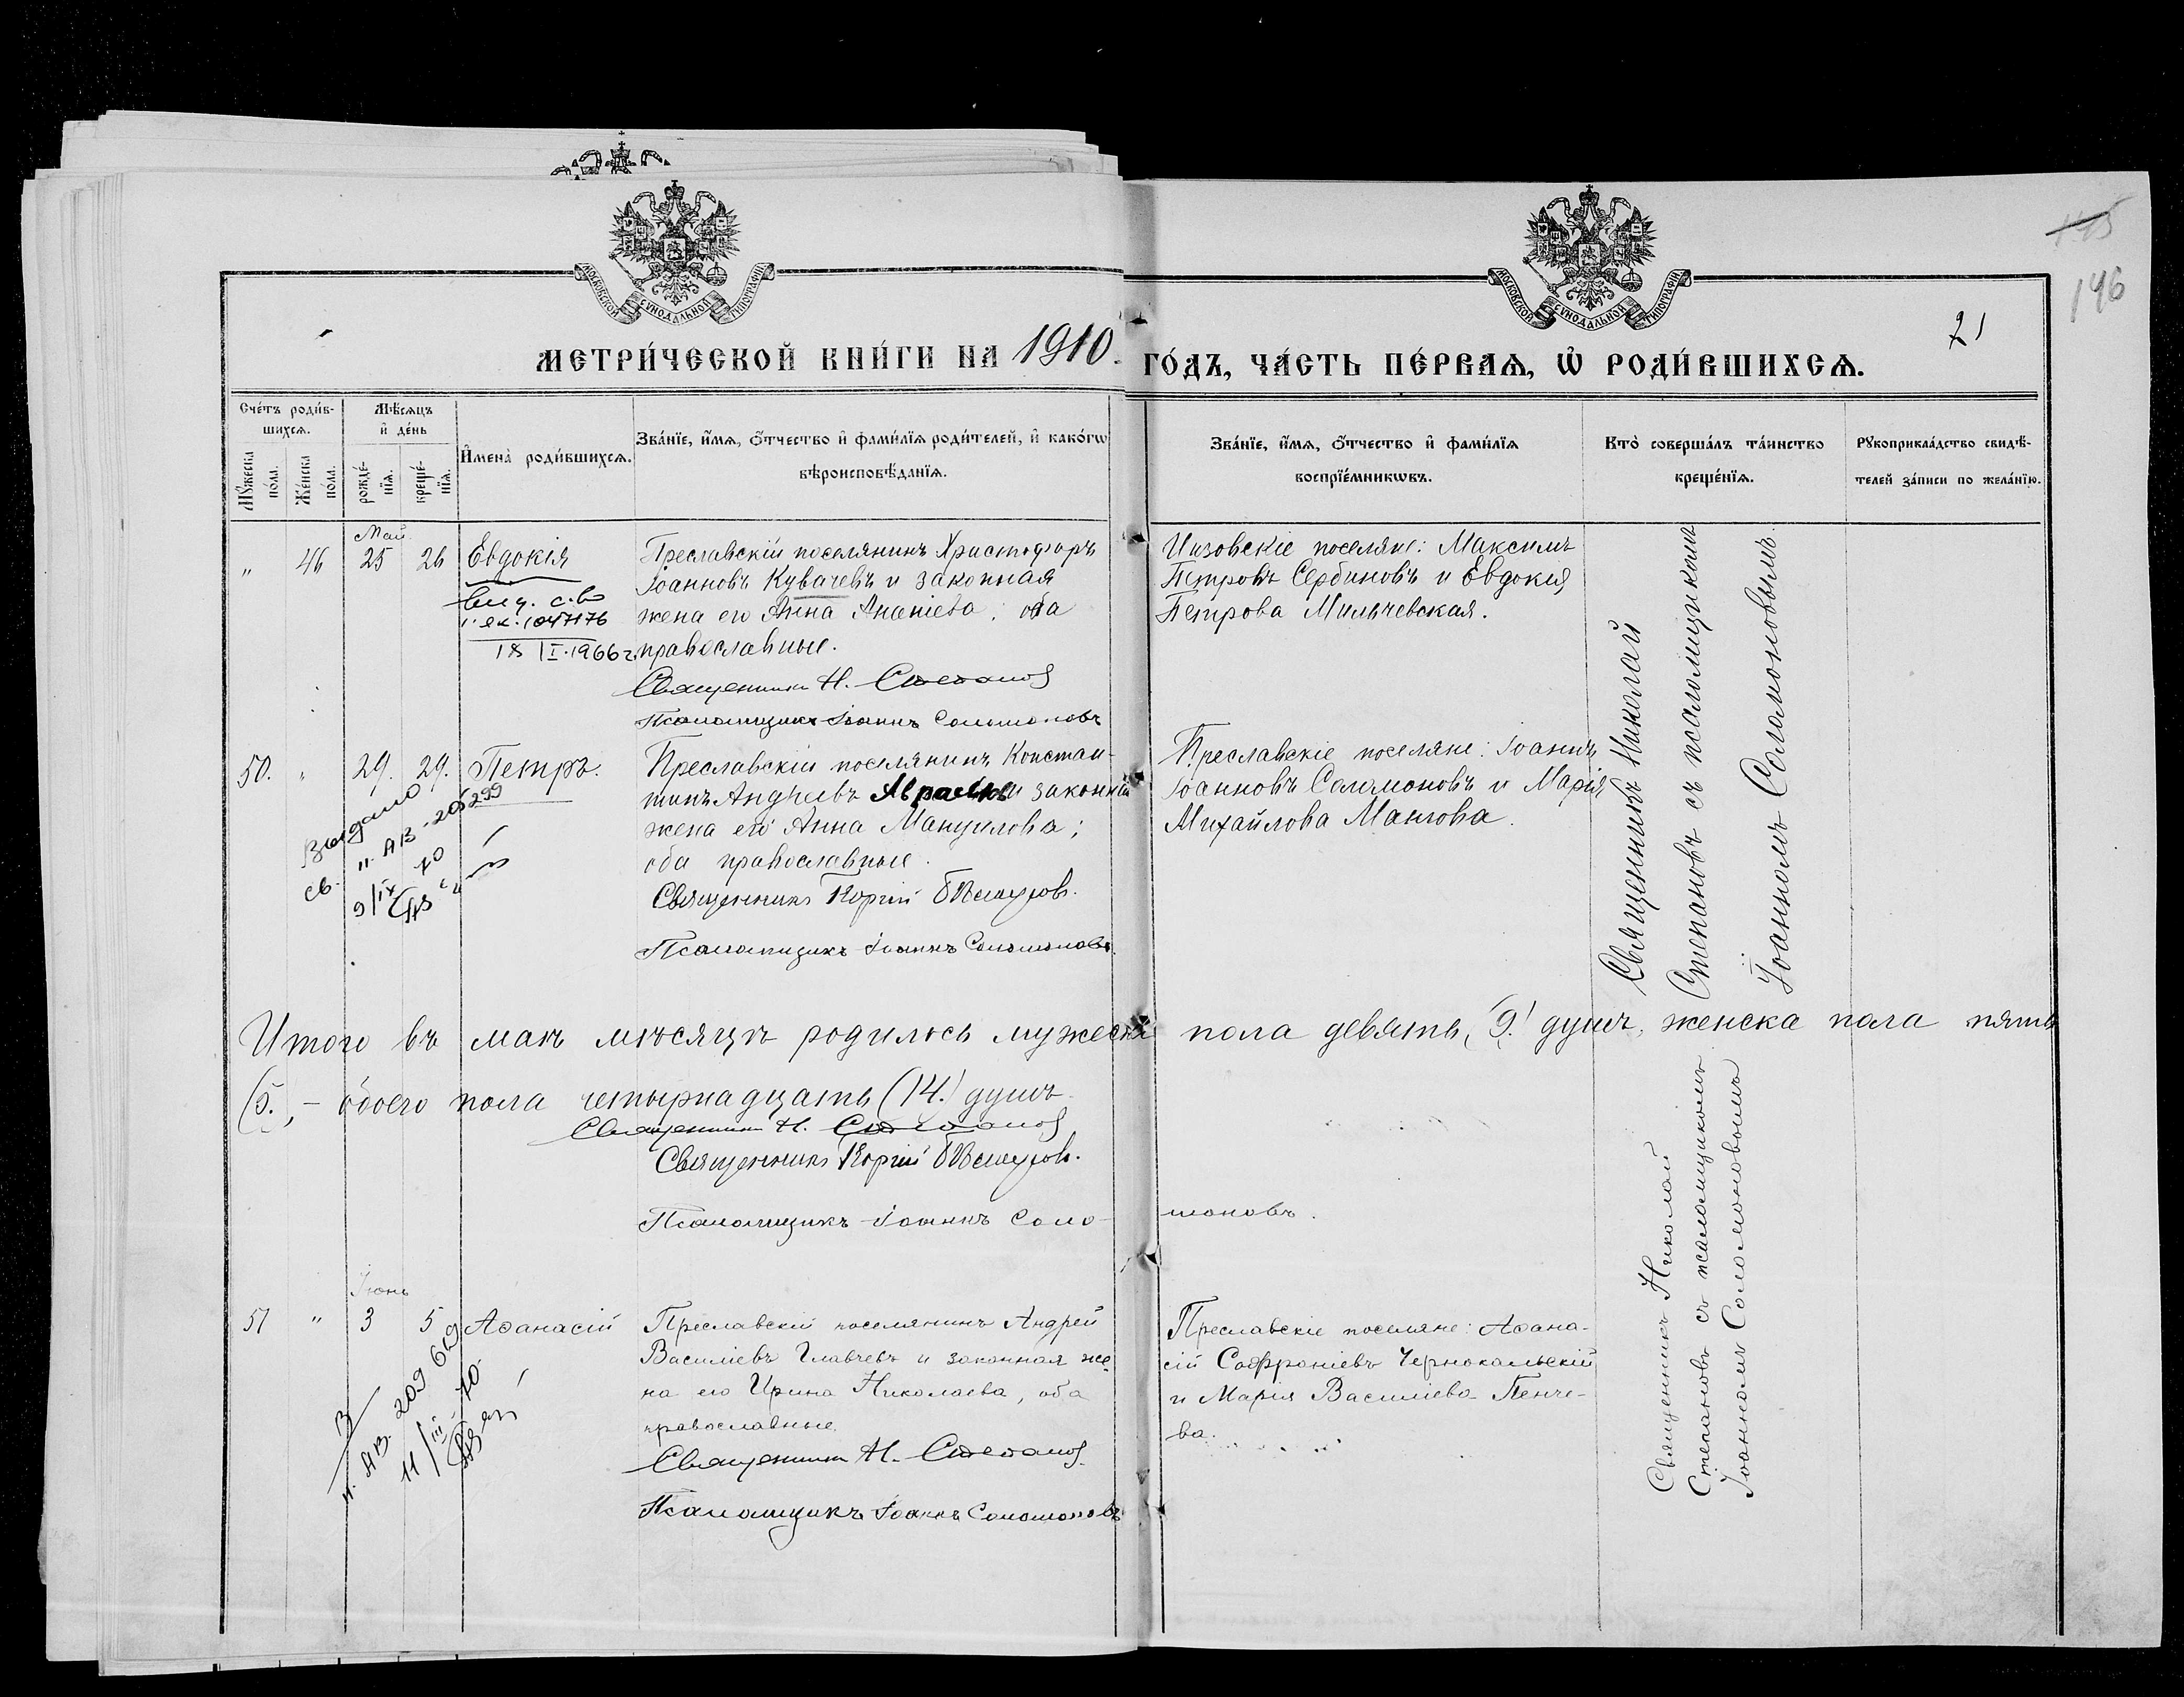 145
146
21
МОСКОВСКОЙ СУНОДАЛЬНОЙ ТИПОГРАФІИ
МОСКОВСКОЙ СУНОДАЛЬНОЙ ТИПОГРАФІИ
МЕТРИ́ЧЕСКОЙ КНИ́ГИ НА 1910 ГО́ДЪ, ЧА́СТЬ ПЕ́РВАѦ, Ѡ҆ РОДИ́ВШИХСѦ.
Сче́тъ роди́в-
шихсѧ.
Мѹ́жеска по́ла.
Же́нска по́ла.
Мѣ́сѧцъ
и҆ де́нь
рожде́-
нїѧ.
креще́-
нїѧ.
И҆мена̀ роди́вшихсѧ.
Зва́нїе, и҆́мѧ, ѻ҆́тчество и҆ фами́лїѧ роди́телей, и҆ како́гѡ
вѣроисповѣ́данїѧ.
Зва́нїе, и҆́мѧ, ѻ҆́тчество и҆ фами́лїѧ
воспрїе́мникѡвъ.
Кто̀ соверша́лъ та́инство
креще́нїѧ.
Рѹкоприкла́дство свидѣ́-
телей за́писи по жела́нїю.
Май
" 46 25 26 Евдокія
выд. с-во
1047176
18 I. 1966 г.
Преславскій поселянинъ Христофоръ
Іоанновъ Кувачевъ и законная
жена его Анна Ананіева; оба
православные.
Священникъ Н. Степановъ
Псаломщикъ Іоаннъ Соломоновъ
Изовскіе поселяне: Максимъ
Петровъ Сербиновъ и Евдокія
Петрова Мильчевская.
Священникъ Николай
Степановъ съ псаломщикомъ
Іоанномъ Соломоновымъ
50. " 29. 29. Петръ.
Выдано
св. II-АВ-205299
9/IX 70
Преславскій поселянинъ Констан-
тинъ Андреевъ и законная
жена его Анна Мануилова;
оба православные.
Священникъ Георгій
Псаломщикъ Іоаннъ Соломоновъ.
Преславскіе поселяне: Іоаннъ
Іоанновъ Соломоновъ и Марія
Михайлова Мангова.
Итого въ маѣ мѣсяцѣ родилось мужеска пола девять, (9.) душъ, женска пола пять
(5.), - обоего пола четырнадцать (14.) душъ.
Священникъ Н. Степановъ
Священникъ Георгій
Псаломщикъ Іоаннъ Соломоновъ.
Іюнь
51 " 3 5 Аѳанасій
II-АВ. 209 629
11/III-70
Преславскій поселянинъ Андрей
Василіевъ Главчевъ и законная же-
на его Ирина Николаева, оба
православные.
Священникъ Н. Степановъ.
Псаломщикъ Іоаннъ Соломоновъ
Преславскіе поселяне: Аѳана-
сій Софроніевъ Чернокальскій
и Марія Василіева Пенче-
ва.
Священникъ Николай
Степановъ съ псаломщикомъ
Іоанномъ Соломоновымъ